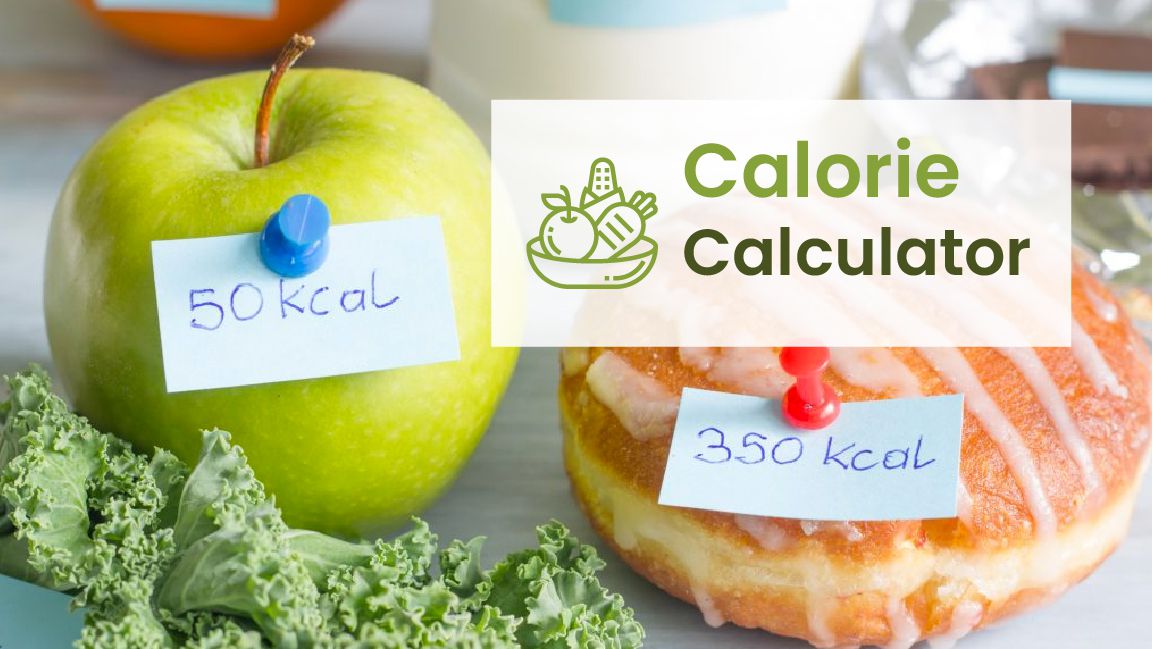 Calorie
Calculator
50 kcal
350 kcal